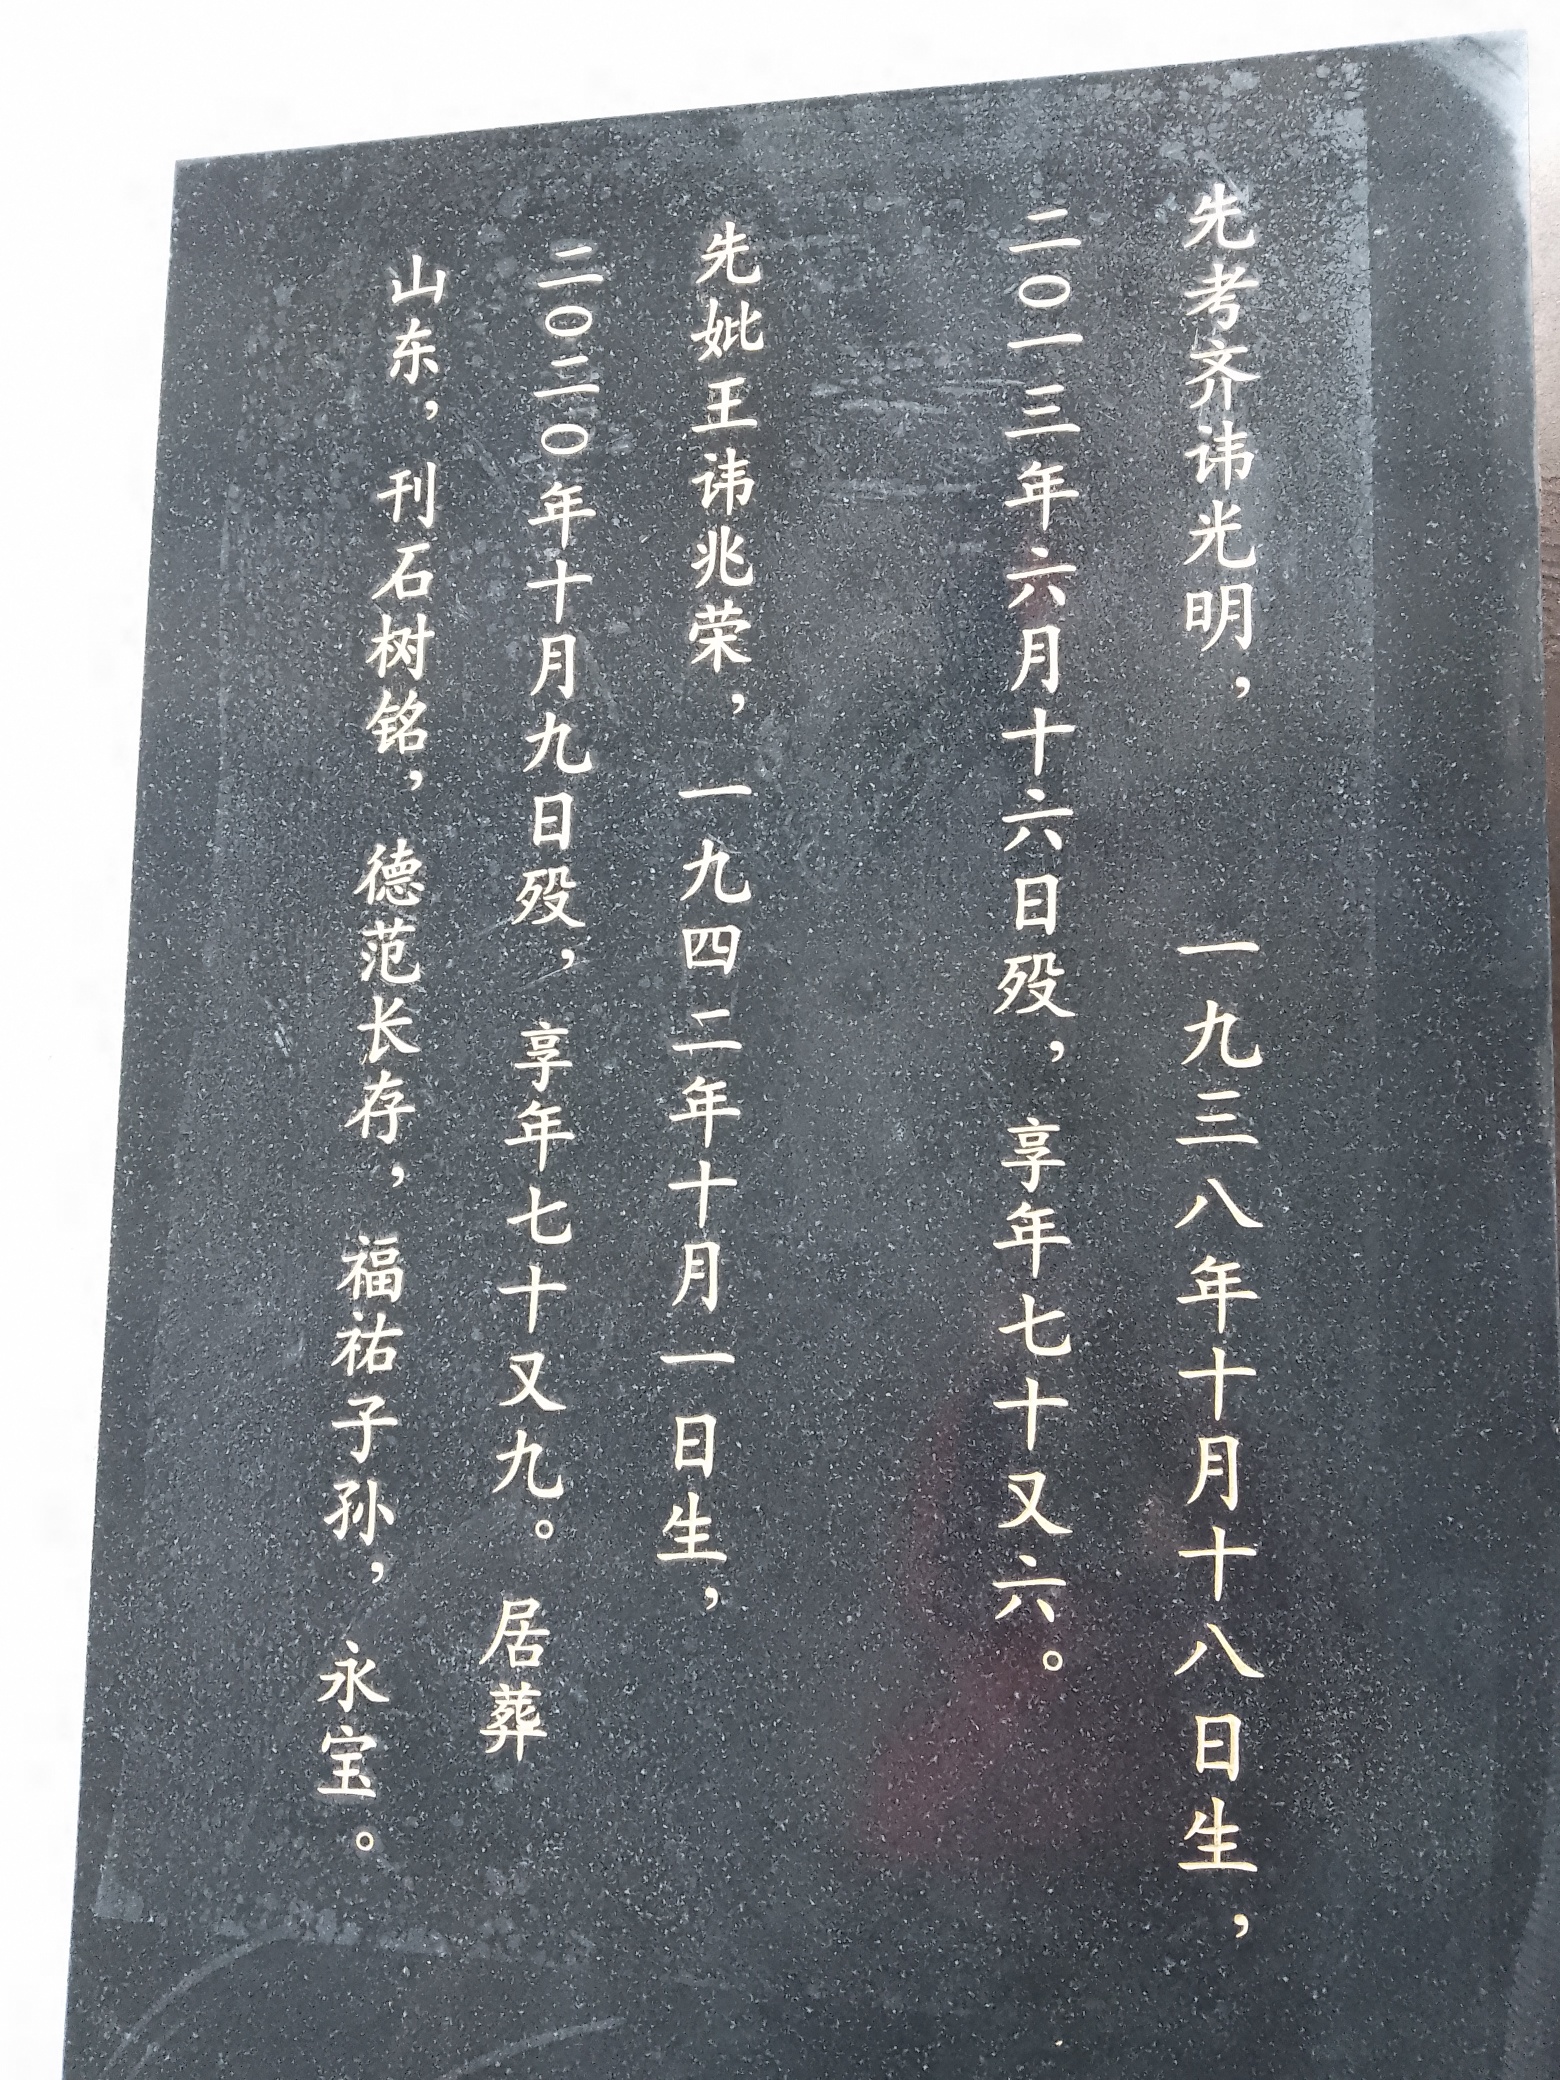 先考齐讳光明，一九三八年十月十八日生，
二〇一三年六月十六日殁，享年七十又六。
先妣王讳兆荣，一九四二年十月一日生，
二〇二〇年十月九日殁，享年七十又九。居葬
山东，刊石树铭，德范长存，福祐子孙，永宝。